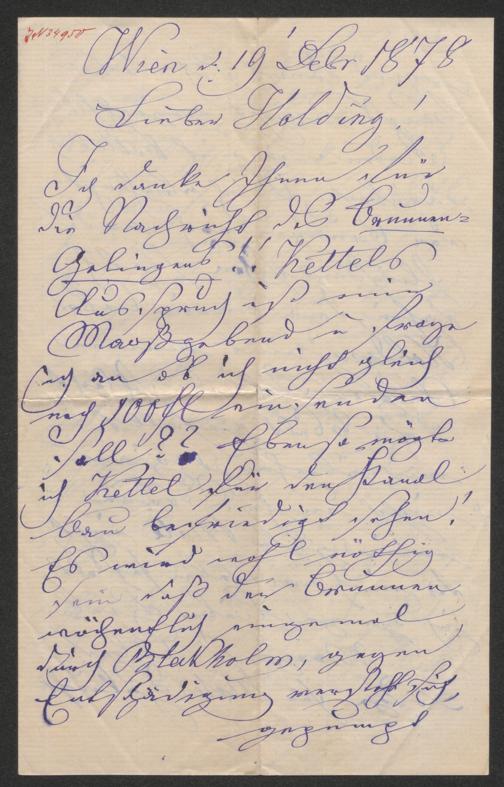 JN 34950
Wien d. 19' Febr 1878
Lieber Holding!
Ich danke Ihnen für
die Nachricht des Brunnen=
Gelingens!! Kettels
Ausspruch ist mir
Maaßgebend u frage
ich an ob ich nicht gleich
noch 100 fl einsenden
soll?? Ebenso mögte
ich Kettel für den Kanal
bau befriedigt sehen!
Es wird wohl nöthig
sein daß der Brunnen
wöchentlich einmal
durch, gegen
Entschädigung versteht sich,
gepumpt